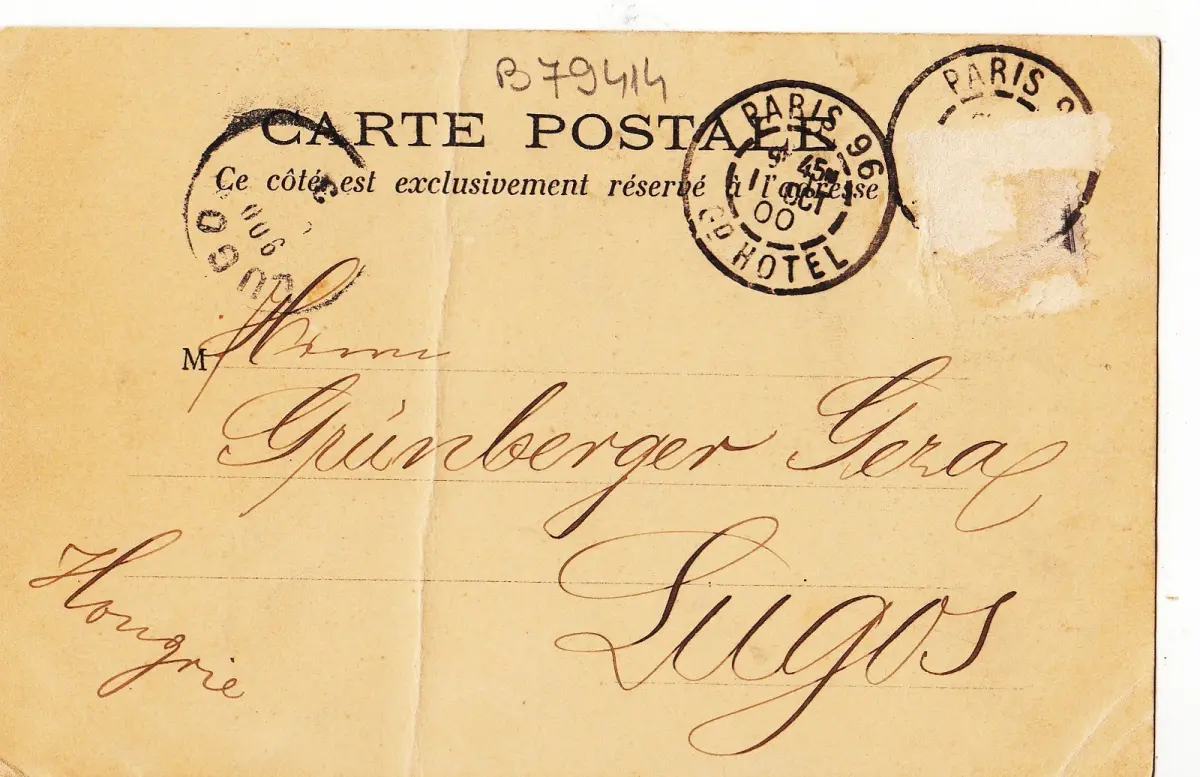 B79414
CARTE POSTALE
Ce côté est exclusivement réservé à l'adresse
PARIS 96
45
OCT
00
GD HOTEL
PARIS
900
M Herrn
Grünberger Geza
Lugos
Hongrie